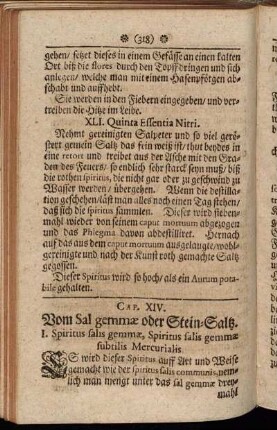 (318)
gehen/ setzet dieses in einem Gefässe an einen kalten
Ort biß die flores durch den Topff dringen und sich
anlegen/ welche man mit einem Hasenpfötgen ab-
schabt und auffhebt.
Sie werden in den Fiebern eingegeben/ und ver-
treiben die Hitze im Leibe.
XLI. Quinta Essentia Nitri.
Nehmt gereinigten Salpeter und so viel gerö-
stetes gemein Saltz das fein weiß ist/ thut beydes in
eine retort und treibet aus der Asche mit den Gra-
den des Feuers/ so endlich sehr starck seyn muß/ biß
die rothen spiritus, die nicht gar oder zu geschwind zu
Wasser werden/ übergehen. Wenn die destilla-
tion geschehen/ läst man alles noch einen Tag stehen/
daß sich die spiritus sammlen. Dieser wird sieben-
mahl wieder von seinem caput mortuum abgezogen
und das Phlegma davon abdestilliret. Hernach
auf das aus dem caput mortuum ausgelaugte/ wohl-
gereinigte und nach der Kunst roth gemachte Saltz
gegossen.
Dieser Spiritus wird so hoch/ als ein Aurum pota-
bile gehalten.
CAP. XIV.
Vom Sal gemmæ oder Stein-Saltz.
I. Spiritus salis gemmæ, Spiritus salis gemmæ
subtilis Mercurialis.
ES wird dieser Spiritus auff Art und Weise
gemacht wie der spiritus salis communis, nem-
lich man mengt unter das sal gemmæ drey-
mahl